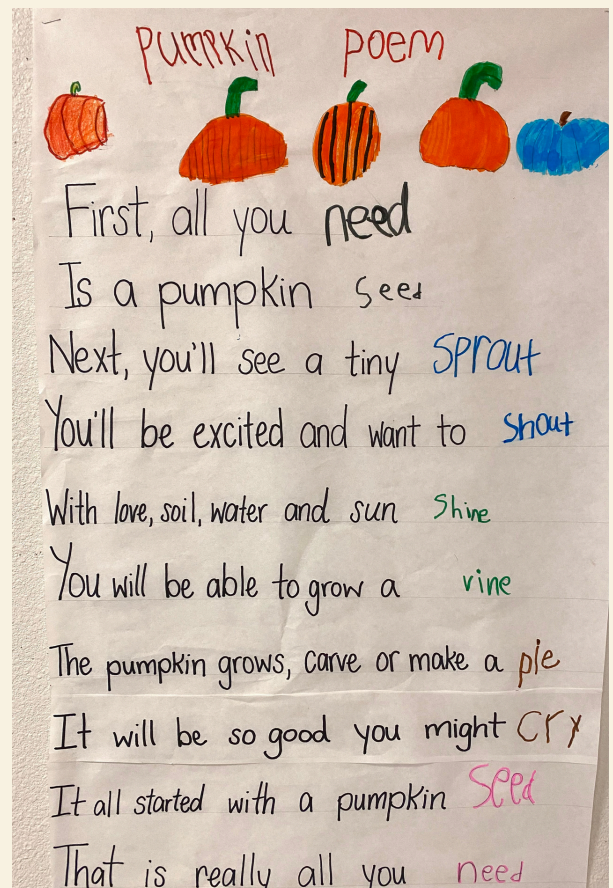 Pumpkin poem
First, all you need
Is a pumpkin seed
Next, you'll see a tiny sprout
You'll be excited and want to shout
With love, soil, water and sun shine
You will be able to grow a vine
The pumpkin grows, carve or make a pie
It will be so good you might cry
It all started with a pumpkin seed
That is really all you need